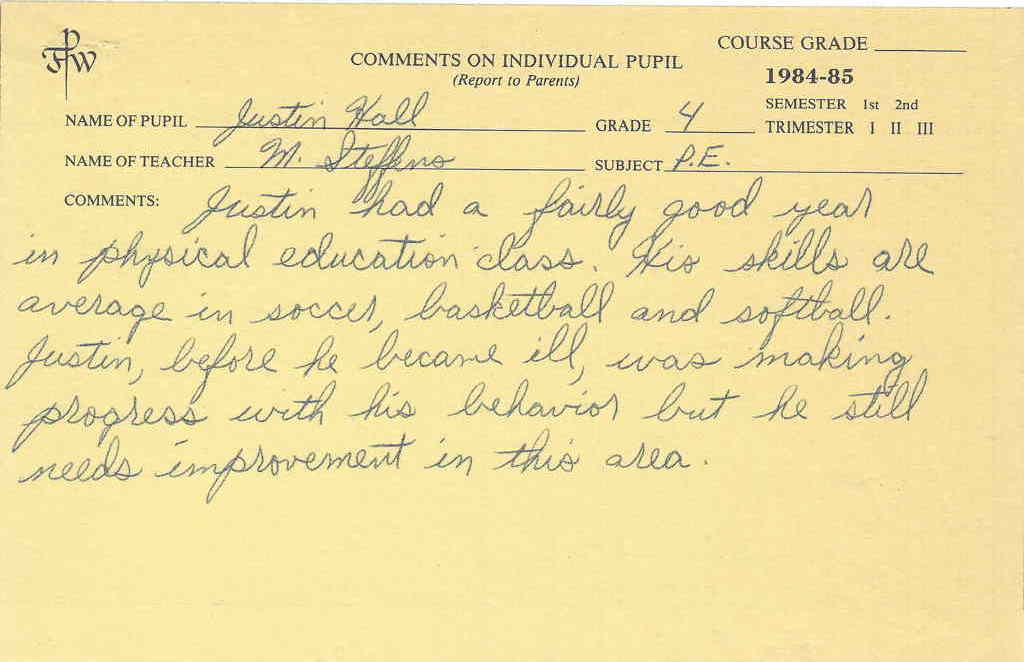 FPW
COURSE GRADE
COMMENTS ON INDIVIDUAL PUPIL
(Report to Parents)
1984-85
SEMESTER 1st 2nd
NAME OF PUPIL Justin Hall GRADE 4 TRIMESTER I II III
NAME OF TEACHER M. Steffens SUBJECT P.E.
COMMENTS: Justin had a fairly good year
in physical education class. His skills are
average in soccer, basketball and softball.
Justin, before he became ill, was making
progress with his behavior but he still
needs improvement in this area.